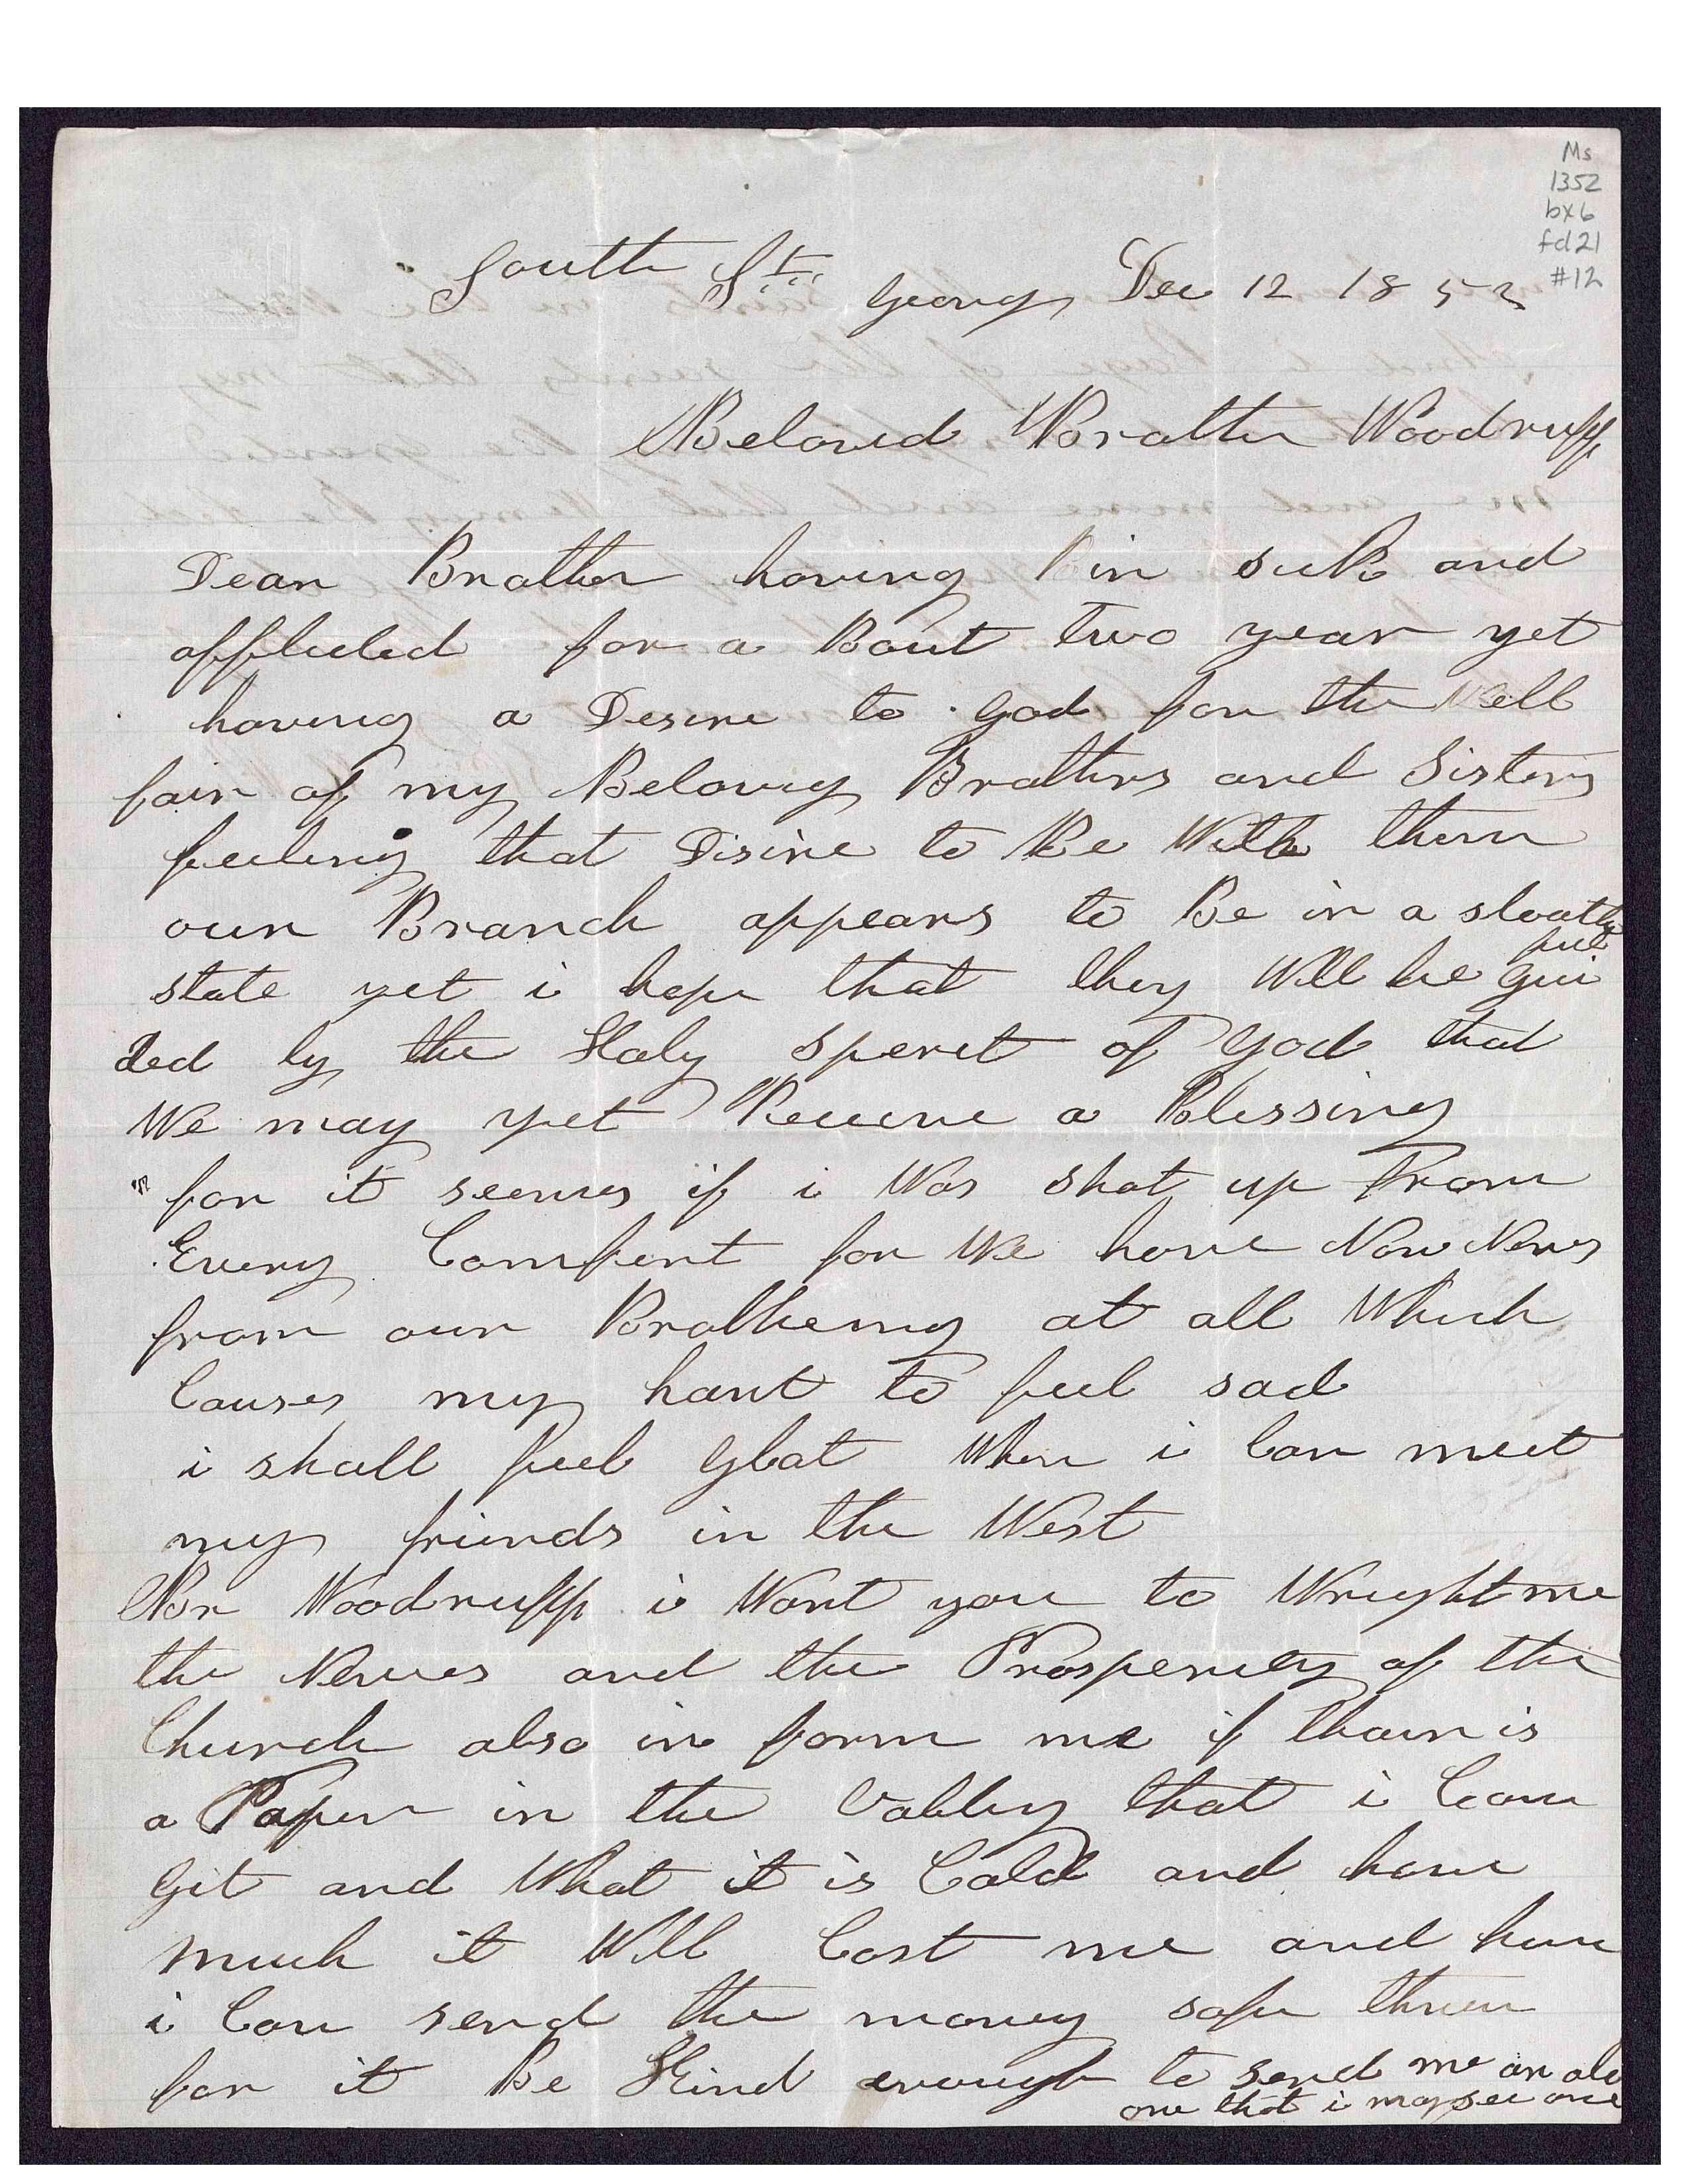 Ms
1352
bx 6
fd 21
#12
South St. georg Dec 12 1852
Beloved Brother Woodruff
Dear Brother having Bin sick and
afflicted for a Bout Two year yet
having a Desire to god for the Well
fair of my Beloving Brothers and Sisters
feeling that Disire to Be With them
our Branch appears to Be in a sloath
full
state yet i hope that they Will be gui
ded by the Holy speret of God that
We may yet Receive a Blessing
for it seemes if i Was shot up From
Every Comfert for We have Now News
from our Brotherng at all Which
Causes my hart to feel sad
i shall feel glat When i Can meet
my friends in the West
Br Woodruff i Want you to Wright me
the Newes and the Prosperity of the
Church also in form me if thair is
a Paper in the Valley that i Can
Git and What it is Cald and how
much it Will Cost me and how
i Can send the money safe threw
for it Be Kind enough to send me an old
one that i may see one